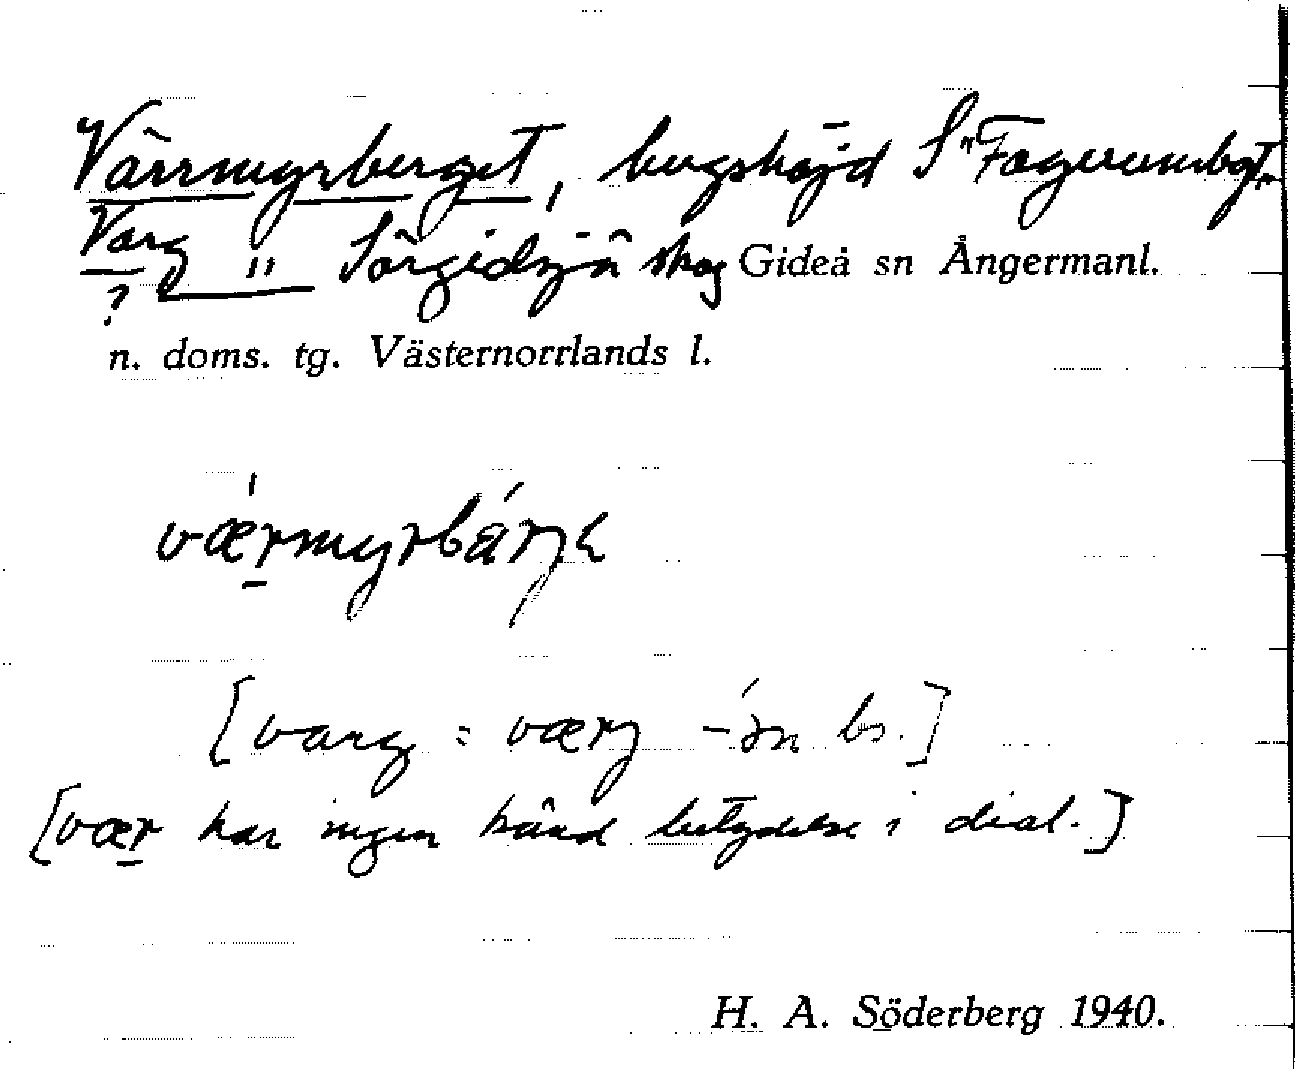 Värrmyrberget, bergshöjd S "Fageråmsbgt"
Varg " Sörgidsjö skog Gideå sn Ångermanl.
?
n. doms. tg. Västernorrlands l.
værmyrbárjɛ
[varg = værj -ə́n bs.]
[vær har ingen känd betydelse i dial.]
H. A. Söderberg 1940.